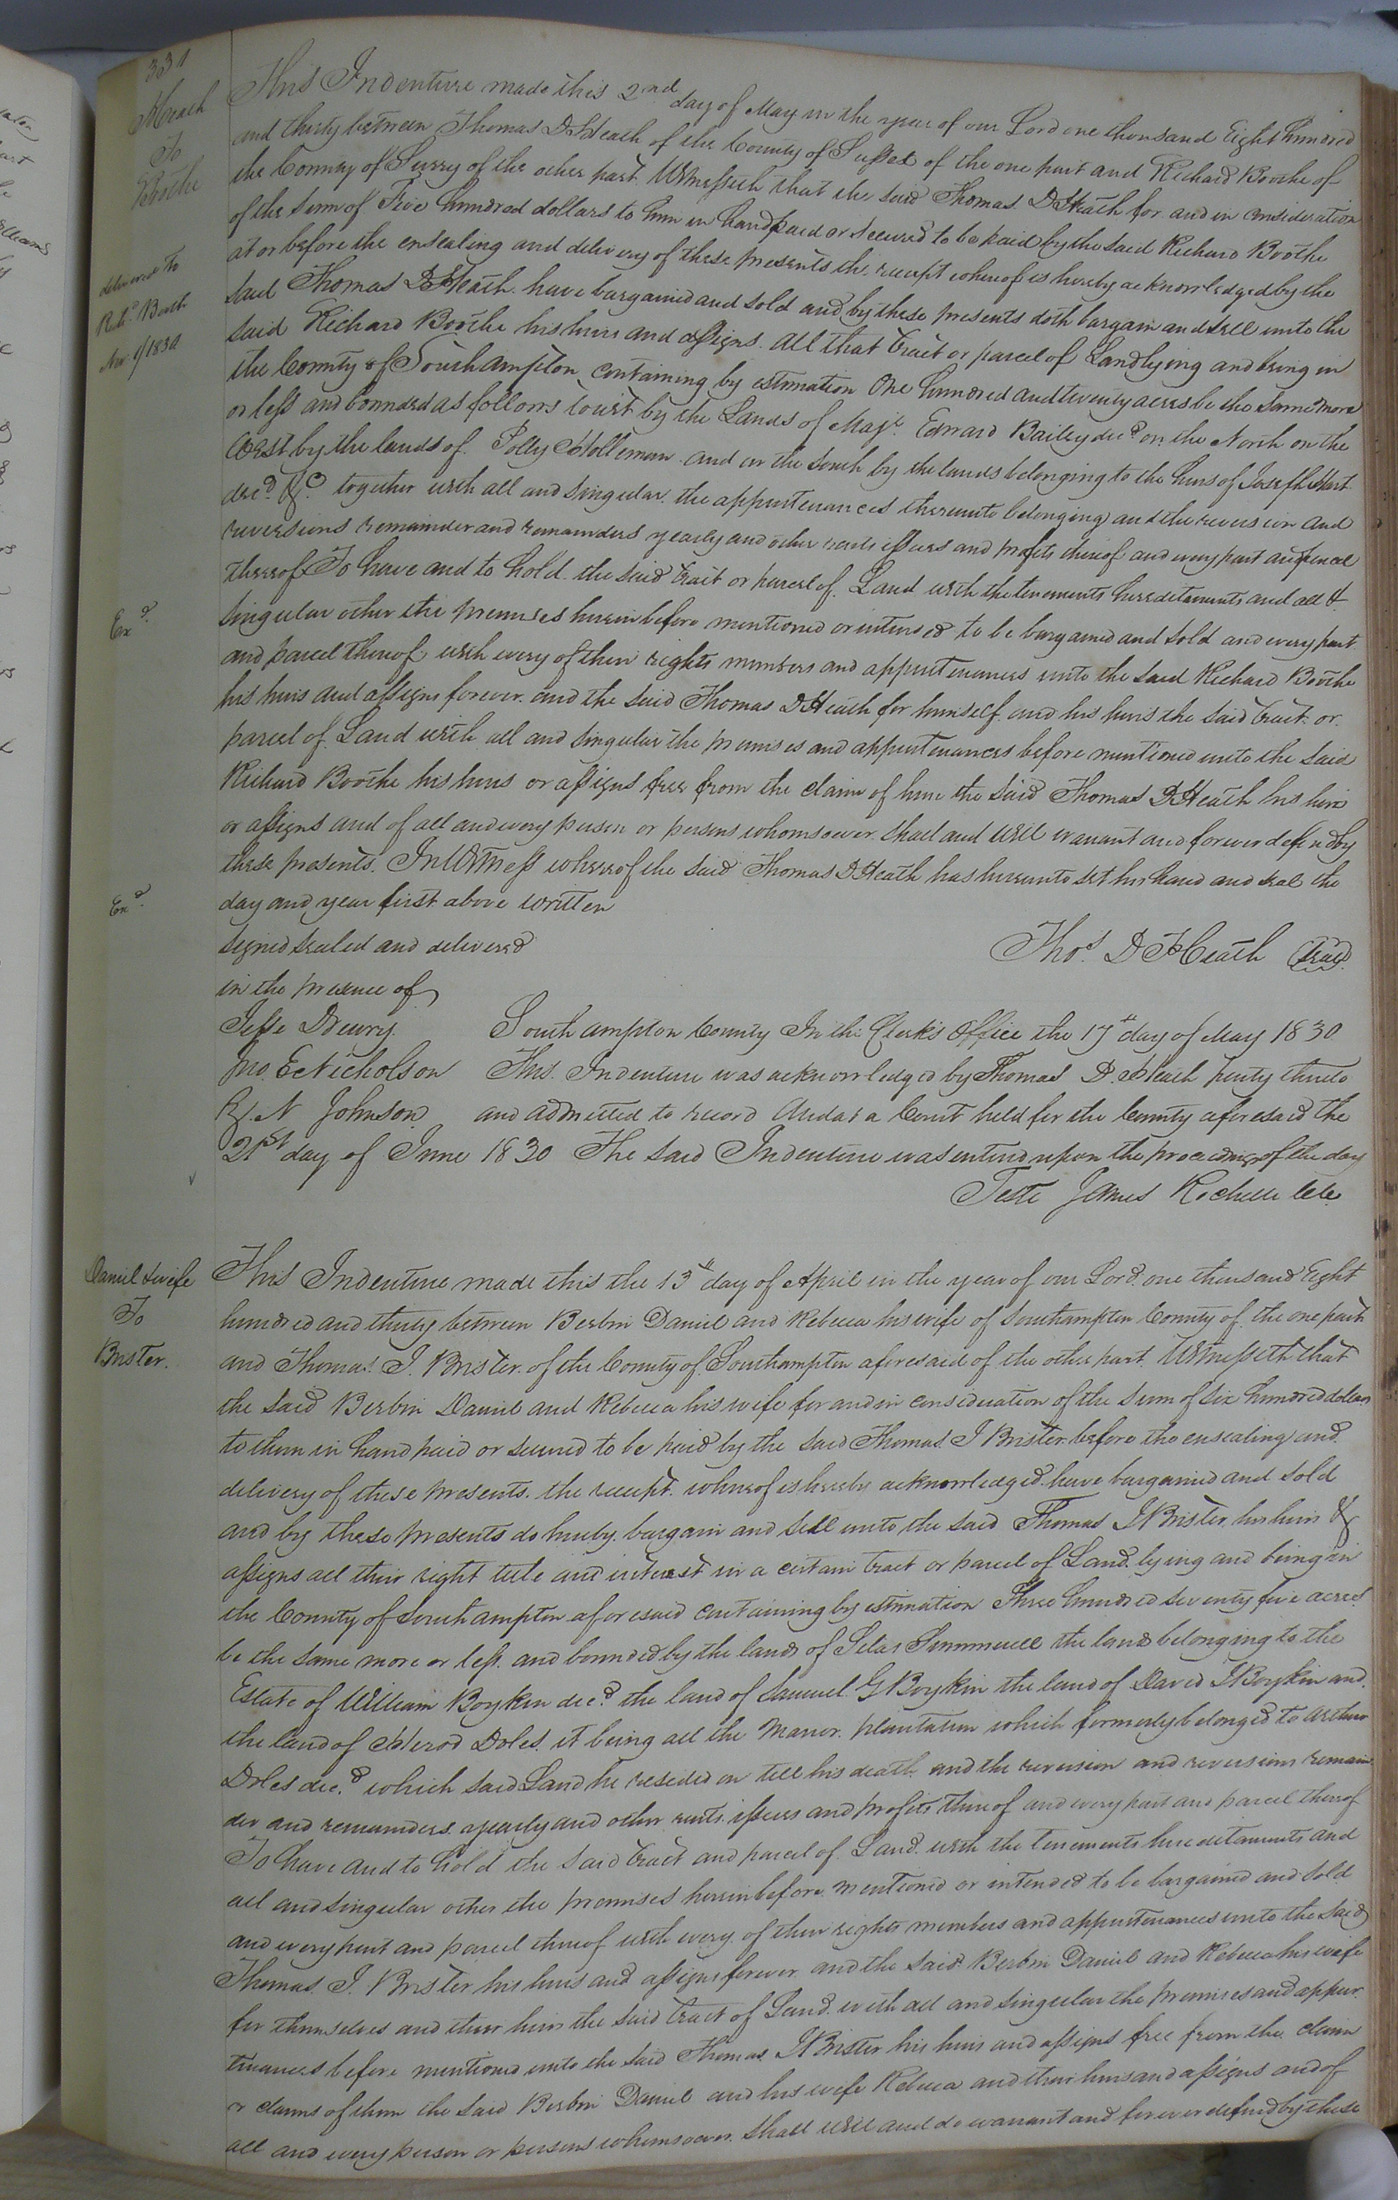 334
Heath
To
Boothe
delivered to
Rich.d Booth
Nov. 1/1834
This Indenture made this 2nd day of May in the year of our Lord one thousand Eight hundred
and thirty between Thomas D Heath of the County of Sussex of the one part and Richard Boothe of
the County of Surry of the other part Witnesseth that the said Thomas D Heath for and in consideration
of the sum of Five hundred dollars to him in hand paid or secured to be paid by the said Richard Boothe
at or before the ensealing and delivery of these presents the receipt whereof is hereby acknowledged by the
said Thomas D Heath have bargained and sold and by these presents doth bargain and sell unto the
said Richard Boothe his heirs and assigns. all that tract or parcel of Land lying and being in
the County of Southampton containing by estimation One hundred and twenty acres be the same more
or less and bounded as follows towit by the Lands of Majr. Edward Bailey decd. on the North on the
West by the lands of Polly Holleman and on the South by the lands belonging to the heirs of Joseph Hart
decd. &c. together with all and singular the appurtenances thereunto belonging and the reversion and
reversions remainder and remainders yearly and other rents issues and profits thereof and every part and parcel
thereof To have and to hold the said tract or parcel of Land with the tenements hereditaments and all &
Exd.
singular other the premises herein before mentioned or intended to be bargained and sold and every part
and parcel thereof with every of their rights members and appurtenances unto the said Richard Boothe
his heirs and assigns forever. and the said Thomas D Heath for himself and his heirs the said tract or
parcel of Land with all and singular the premises and appurtenances before mentioned unto the said
Richard Boothe his heirs or assigns free from the claim of him the said Thomas D Heath his heirs
or assigns and of all and every person or persons whomsoever shall and will warrant and forever defend by
these presents. In Witness whereof the said Thomas D Heath has hereunto set his hand and seal the
Exd.
day and year first above written
signed sealed and delivered
Thos. D Heath (seal)
in the presence of
Jesse Drewry
Jno. E Nicholson
N Johnson
Southampton County In the Clerk's Office the 17th day of May 1830
This Indenture was acknowledged by Thomas D. Heath party thereto
and admitted to record And at a Court held for the County aforesaid the
21st day of June 1830 The said Indenture was entered upon the proceedings of the day
Teste James Rochelle
Daniel & wife
To
Brister.
This Indenture made this the 13th day of April in the year of our Lord one thousand Eight
hundred and thirty between Berbin Daniel and Rebecca his wife of Southampton County of the one part
and Thomas J. Brister of the County of Southampton aforesaid of the other part Witnesseth that
the said Berbin Daniel and Rebecca his wife for and in consideration of the sum of six hundred dollars
to them in hand paid or secured to be paid by the said Thomas J Brister before the ensealing and
delivery of these presents the receipt whereof is hereby acknowledged have bargained and sold
and by these presents do hereby bargain and sell unto the said Thomas J Brister his heirs &
assigns all their right title and interest in a certain tract or parcel of Land lying and being in
the County of Southampton aforesaid containing by estimation Three hundred seventy five acres
be the same more or less and bounded by the lands of Silas Summerell the land belonging to the
Estate of William Boykin decd. the land of Samuel G Boykin the land of David J Boykin and
the land of Herod Doles it being all the Manor plantation which formerly belonged to Arthur
Doles decd. which said Land he resided on till his death and the reversion and reversions remain
der and remainders yearly and other rents issues and profits thereof and every part and parcel thereof
To have and to hold the said tract and parcel of Land with the tenements hereditaments and
all and singular other the premises herein before mentioned or intended to be bargained and sold
and every part and parcel thereof with every of their rights members and appurtenances unto the said
Thomas J. Brister his heirs and assigns forever and the said Berbin Daniel and Rebecca his wife
for themselves and their heirs the said tract of Land with all and singular the premises and appur
tenances before mentioned unto the said Thomas J Brister his heirs and assigns free from the claim
or claims of them the said Berbin Daniel and his wife Rebecca and their heirs and assigns and of
all and every person or persons whomsoever shall will and do warrant and forever defend by these